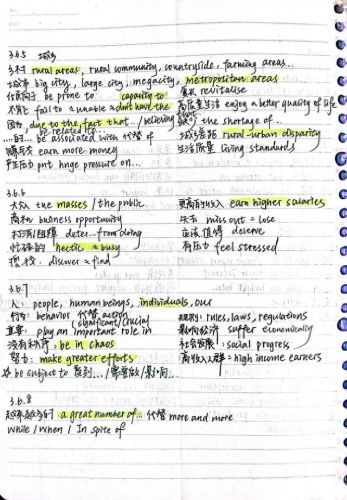 3.6.5 城乡
乡村 rural areas, rural community, countryside, farming areas...
城市 big city, large city, megacity, metropolitan areas
be prone to capacity to 复兴 revitalise
不能 fail to ≈ unable ≈ don't have the 高质量生活 enjoy a better quality of life
因为, due to the fact that.../believing 缺少 the shortage of...
be related to
...的... be associated with 代替 of 城乡差距 rural-urban disparity
赚更多 earn more money 生活质量 living standards
产生压力 put huge pressure on...
3.6.6
大众 the masses / the public. 更高的收入 earn higher salaries
商机 business opportunity 失去 miss out = lose
打消/阻碍 deter...from doing 应该值得 deserve
忙碌的 hectic = busy 有压力 feel stressed
discover = find
3.6.7
人: people, human beings, individuals, our
行为: behavior 代替 action 规则: rules, laws, regulations
(significant/crucial
重要: play an important role in 影响经济 suffer economically
没有秩序: be in chaos 社会发展: social progress
努力: make greater efforts 高收入人群: high income earners
☆ be subject to 受到.../需要做/影响...
3.6.8
越来越多的 a great number of... 代替 more and more
While / When / In spite of